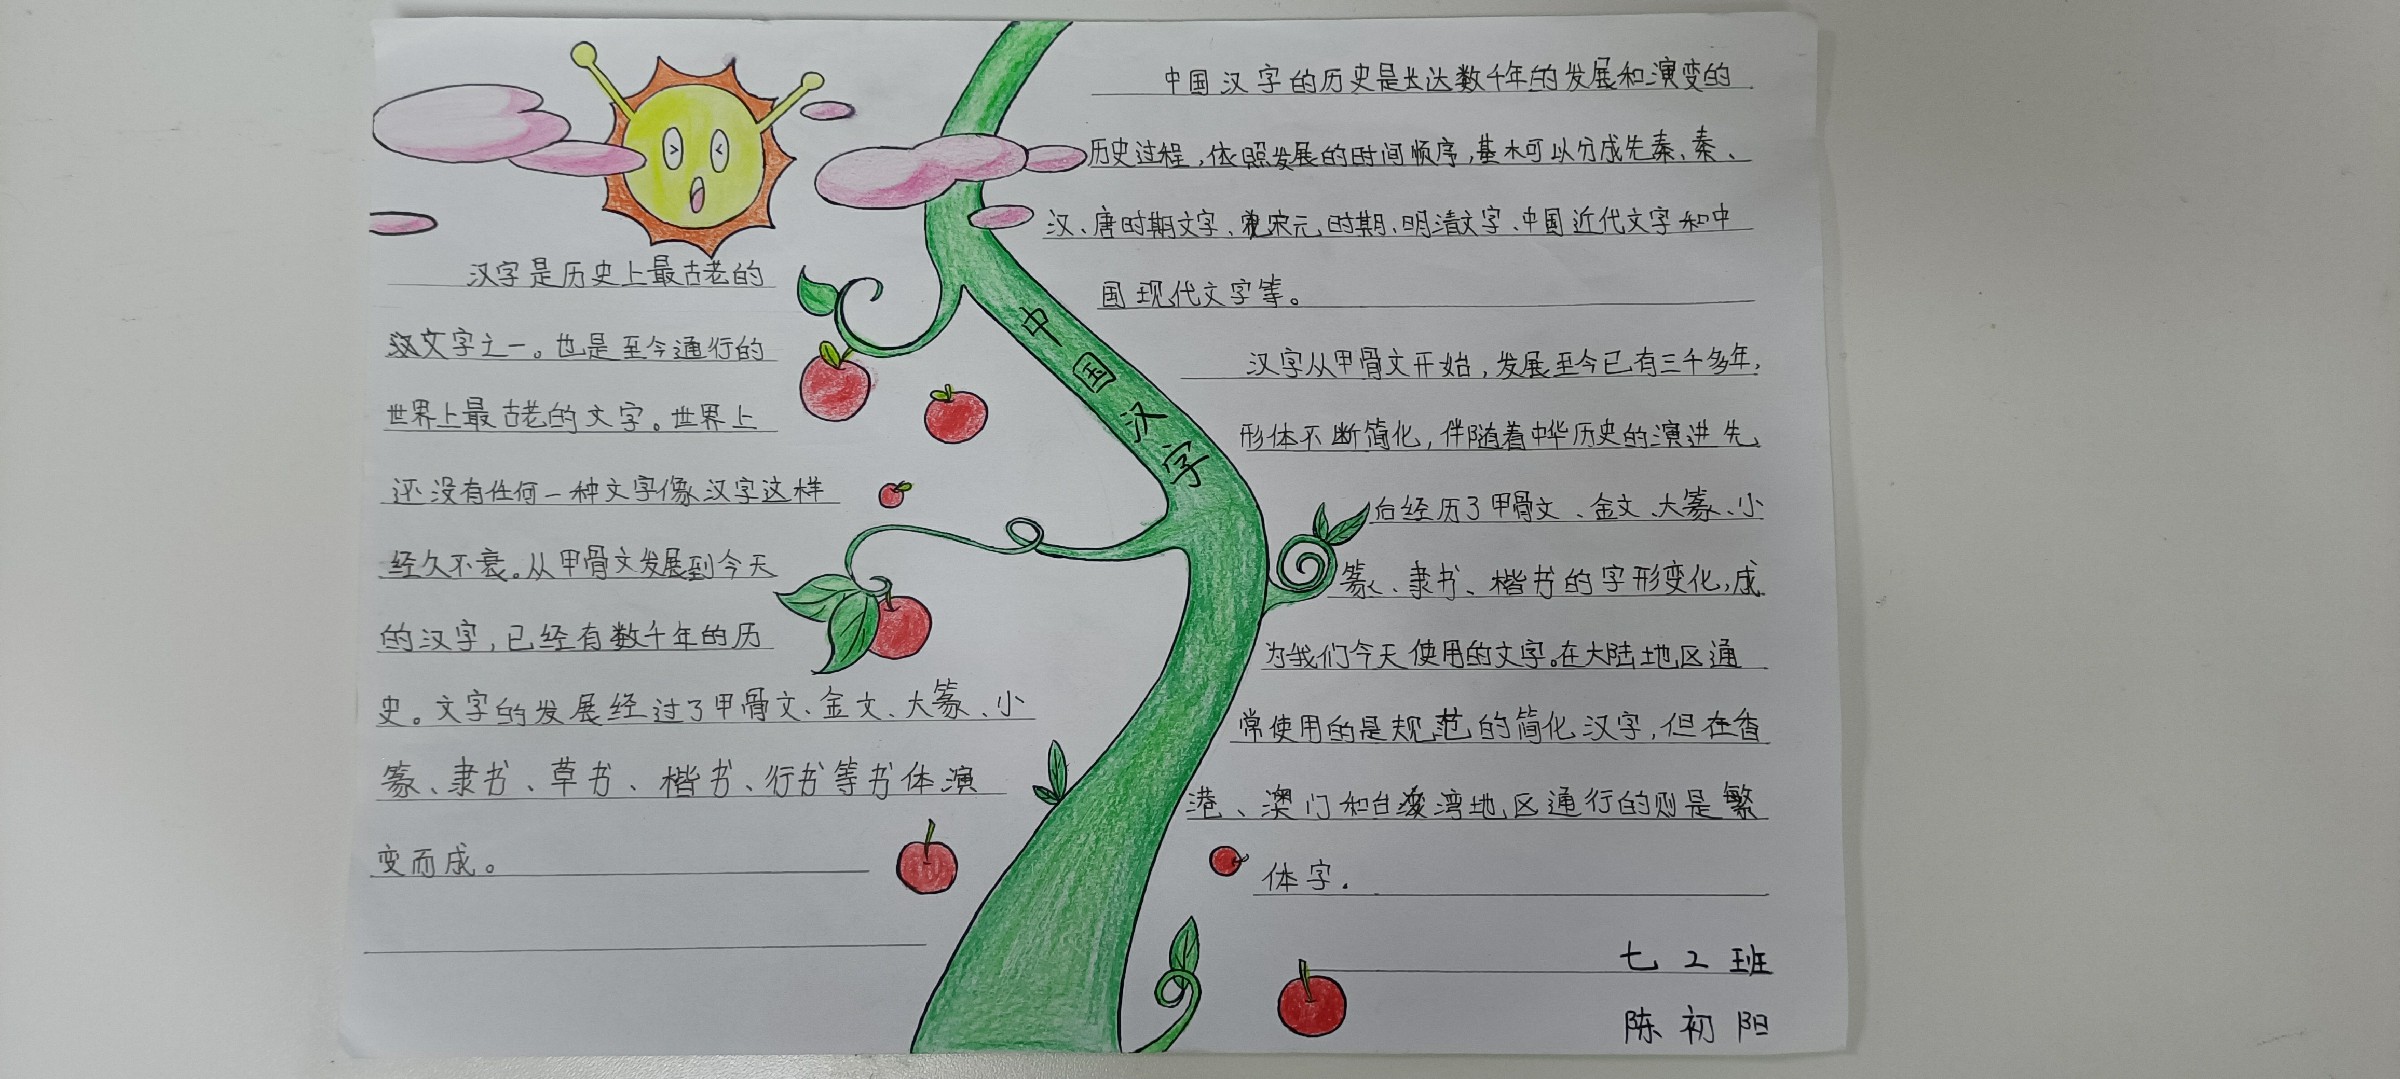 汉字是历史上最古老的
文字之一。也是至今通行的
世界上最古老的文字。世界上
还没有任何一种文字像汉字这样
经久不衰。从甲骨文发展到今天
的汉字，已经有数千年的历
史。文字的发展经过了甲骨文、金文、大篆、小
篆、隶书、草书、楷书、行书等书体演
变而成。
中国汉字
中国汉字的历史是长达数千年的发展和演变的
历史过程，依照发展的时间顺序，基木可以分成先秦、秦、
汉、唐时期文字、宋元时期、明清文字、中国近代文字和中
国现代文字等。
汉字从甲骨文开始，发展至今已有三千多年，
形体不断简化，伴随着中华历史的演进先
后经历了甲骨文、金文、大篆、小
篆、隶书、楷书的字形变化，成
为我们今天使用的文字。在大陆地区通
常使用的是规范的简化汉字，但在香
港、澳门和台湾地区通行的则是繁
体字.
七2班
陈初阳